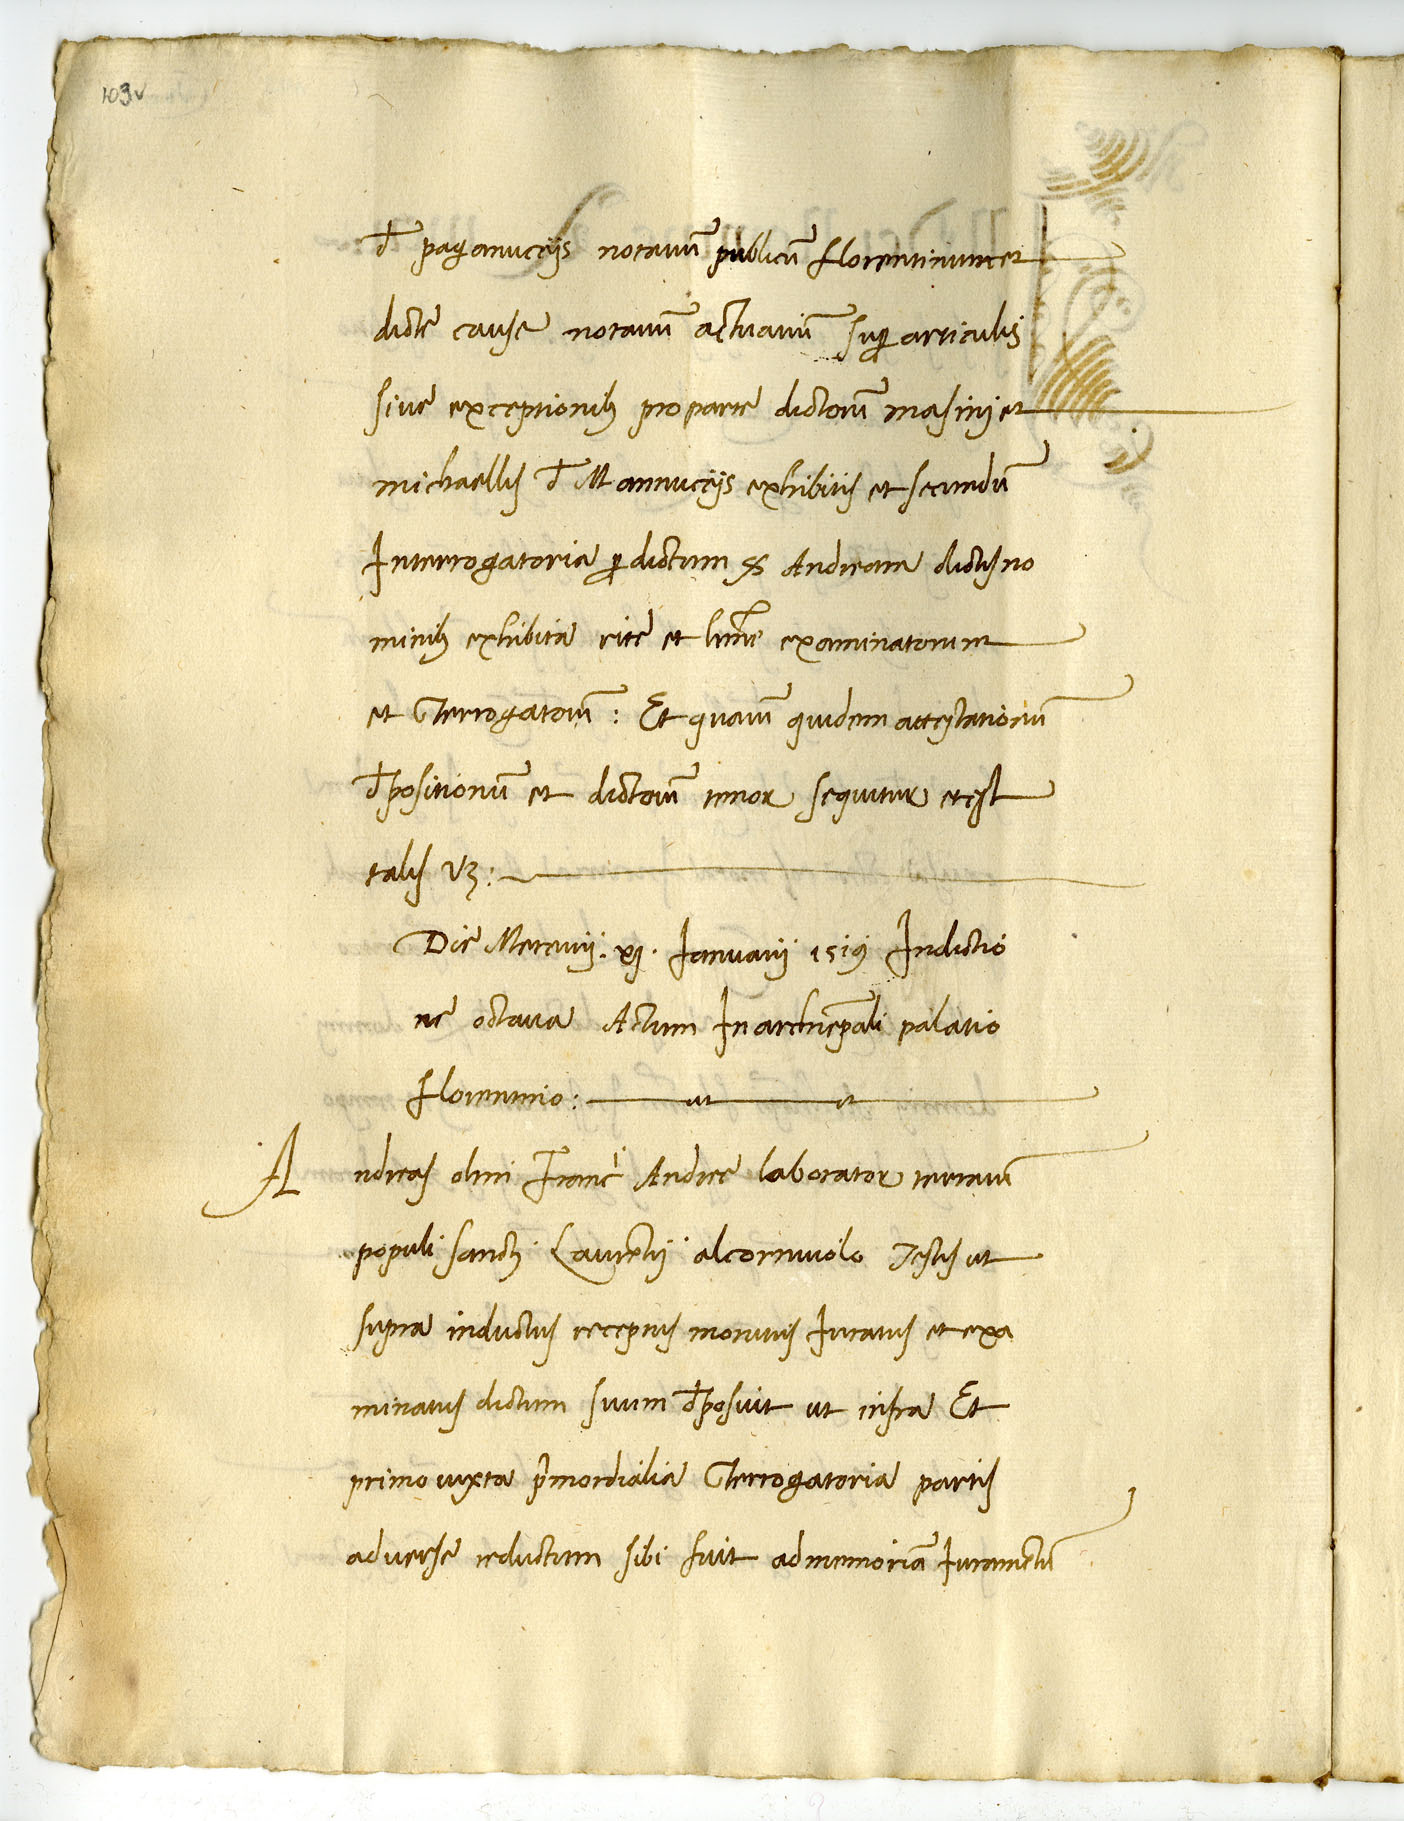 103v
đ paganuccijs notariũ publicũ florentinum et
dicte cause notariũ actuariũ sup articulis
sive exceptionib pro parte dictorũ masinj et
michaellis đ Mannuccijs exhibitis et secundũ
Interrogatoria p dictum S Andream dictis no
minib exhibita rite et lime examinatorum
et Iterrogatorũ : Et quarũ quidem attestationũ
đpositionũ et dictorũ tenor sequitur et est
talis vz :
Die Mercurij . xj . Ianuarij 1519 Indictio
ne octava Actum In archiepali palatio
florentino : ut et
Andreas olim Franc Andree laborator terrarũ
populi sancti Laurẽtij alcornuolo Testis ut
supra inductus receptus monitus Iuratus et exa
minatus dictum suum đposuit ut infra Et
primo iuxta pimordialia Iterrogatoria partis
adverse reductum sibi fuit ad memoriã Iuramẽtũ